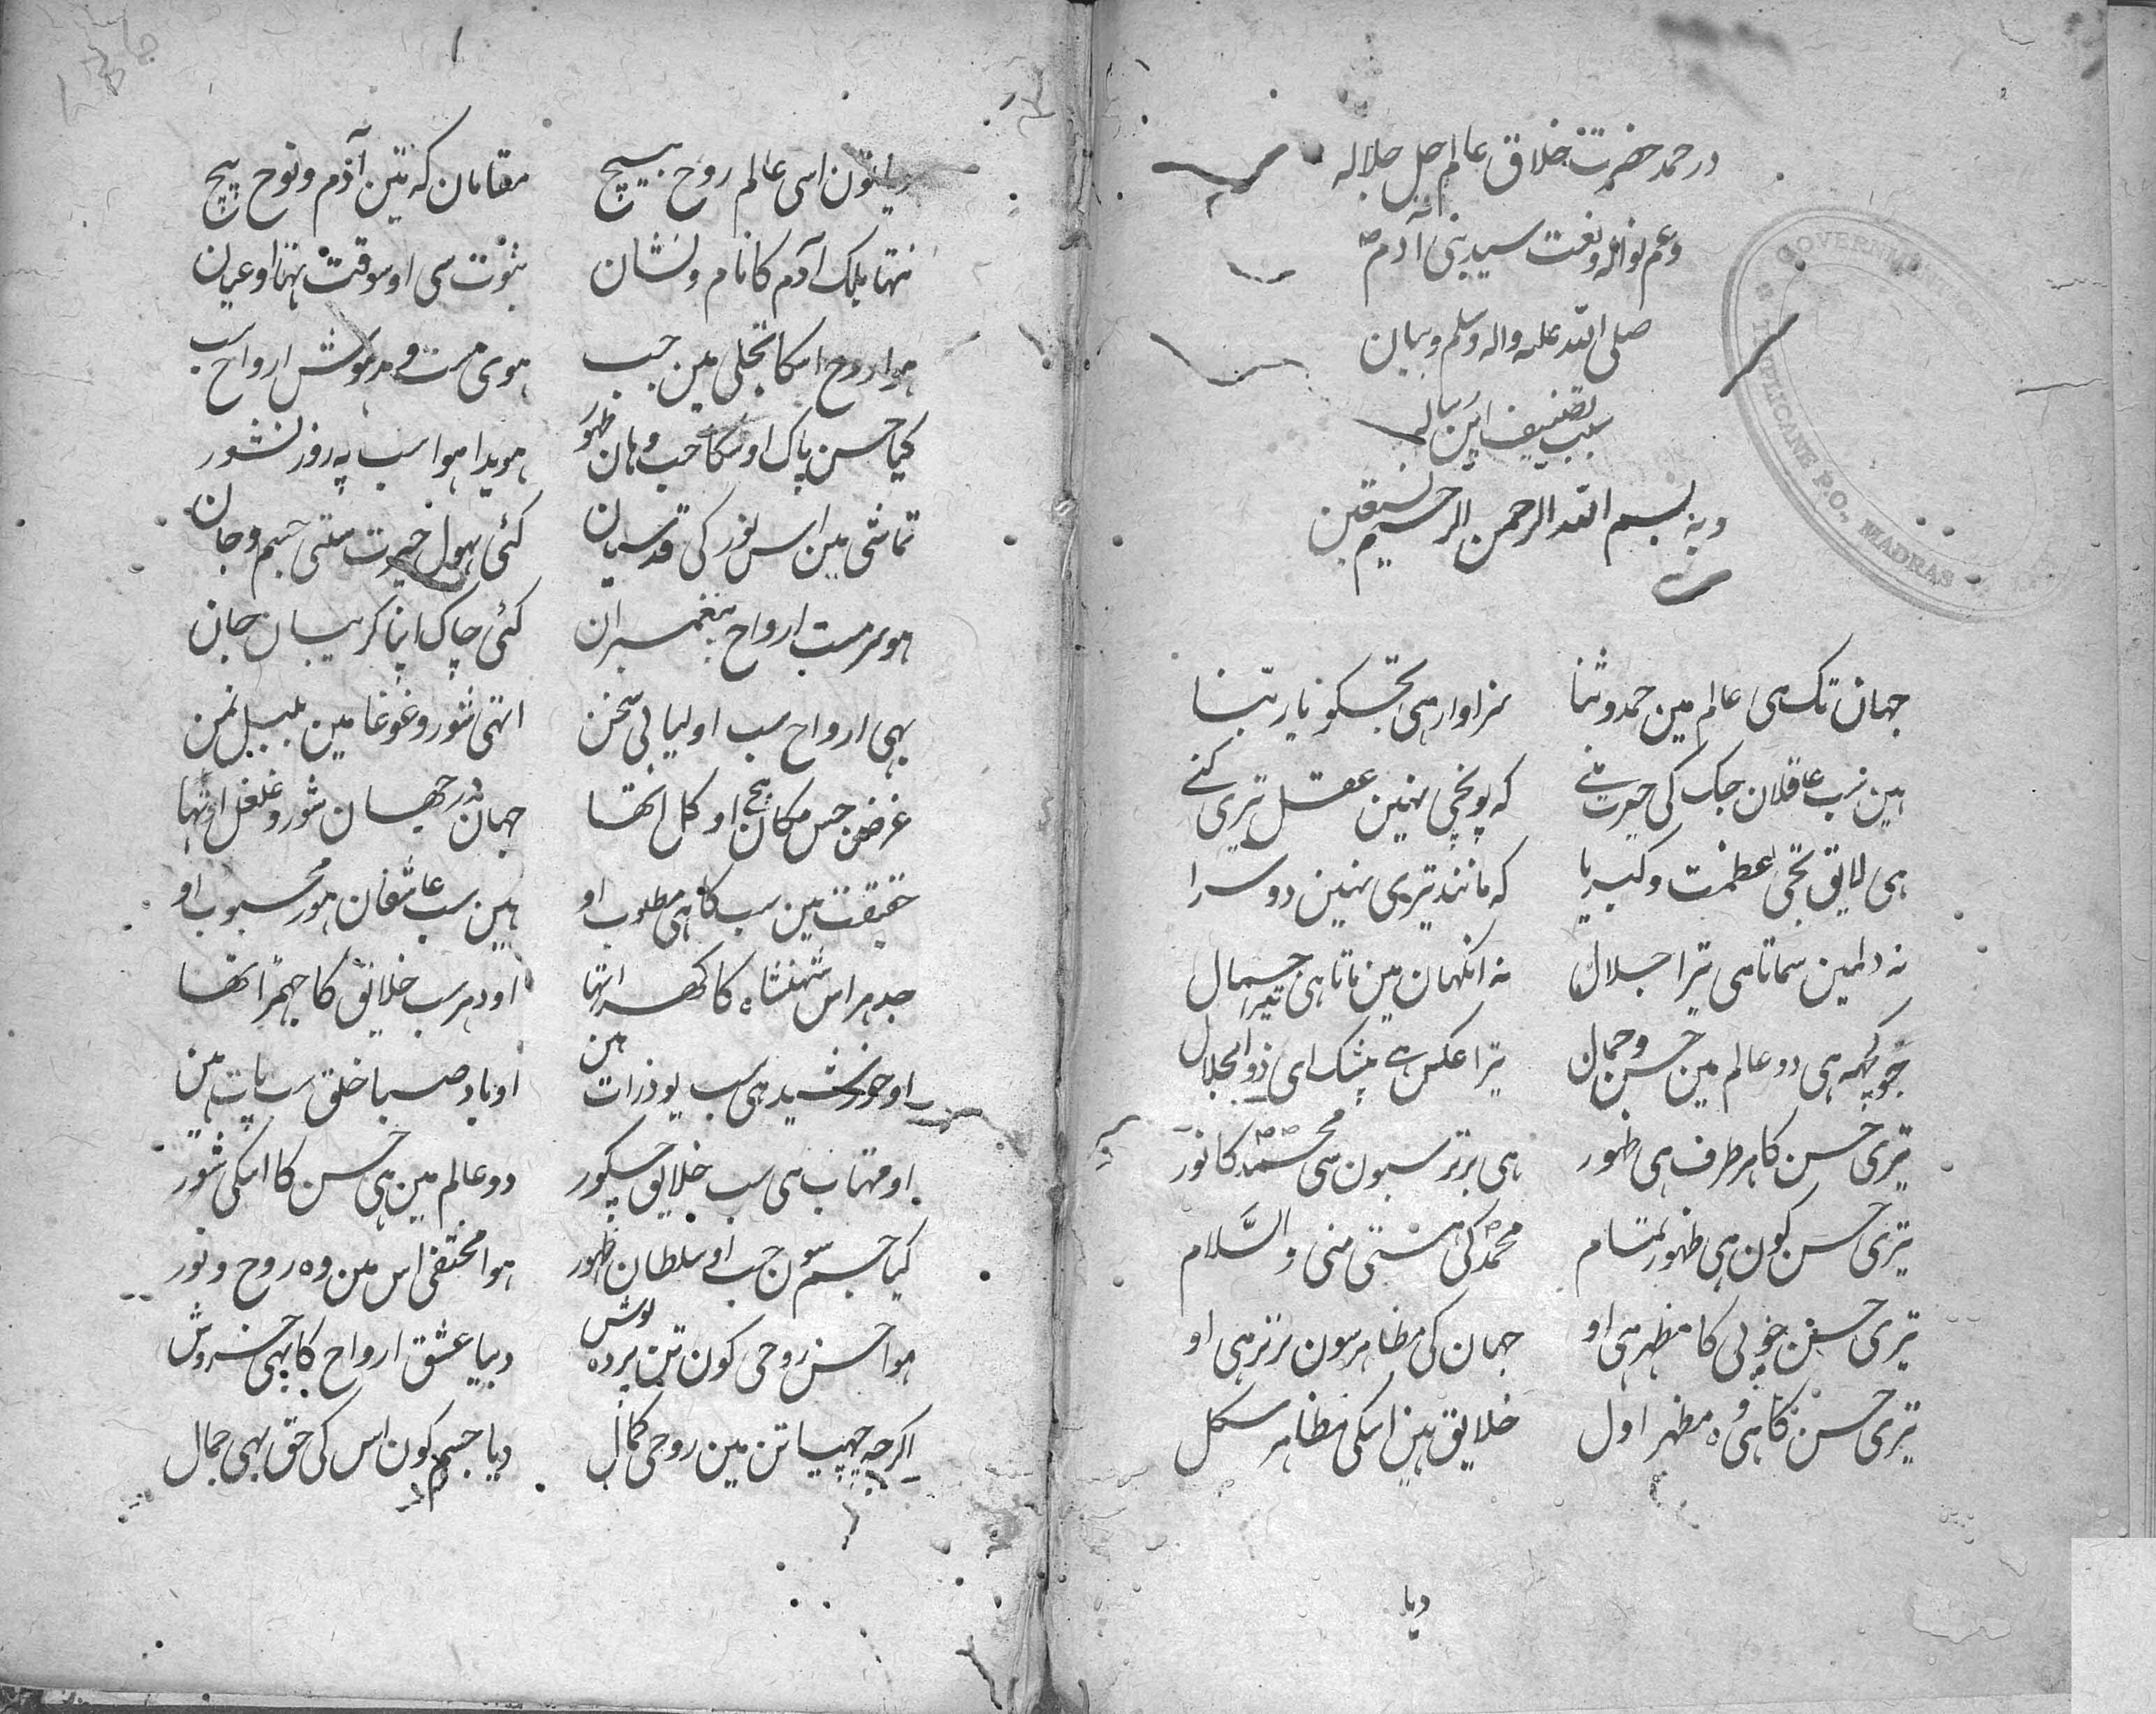 در حمد حضرت خلاق عالم جل جلاله
و عم نواله و نعت سید بنی آدم
صلی الله علیه واله وسلم وبیان
سبب تصنیف این
وبه بسم الله الرحمن الرحیم نستعین
جهان تک هی عالم مین حمد و ثنا سزاوار هی تجکو یا ربّنا
هین سب عاقلان جک کی حیرت منے که پونچی نهین عقل تیری کنے
هی لایق تجی عظمت و کبریا که مانند تیری نهین دوسرا
نه دلمین سماتا هی تیرا جلال نه انکهان مین ماتا هی تیرا جمال
جو کچهه هی دو عالم مین حسن و جمال ترا عکس هے بیشک ای ذوالجلال
تیری حسن کا هر طرف هی ظهور هی برتر سبون سی محمد کا نور
تیری حسن کون هی ظهور تمام محمد کی هستی منی والسّلام
تیری حسن خوبی کا مظهر هی او جهان کی مظاهر سون برتر هی او
تیری حسن کا هی وه مظهر اول خلایق هین اسکی مظاهر سکل
دیا
اسی عالم روح بیچ مقامان که تین آدم و نوح بیچ
نتها یلک آدم کا نام و نشان نبوت سی اوسوقت تها او عیان
هوا روح اسکا تجلی مین جب هوی مست و مدهوش ارواح سب
کیا حسن پاک اوسکا جب وهان ظهور هویدا هوا سب په روز نشور
تماشی مین اس نور کی قدسیان کئی بهول حیرت ستی جسم و جان
هو سرمست ارواح پیغمبران کئی چاک اپنا کریبان جان
بهی ارواح سب اولیا بی سخن اتهی شور و غوغا مین بلبل نمن
غرض جس مکان بیچ او کل اتها جهان در جهان شور و غلغل اوتها
حقیقت مین سب کا هی مطلوب او هین سب عاشقان هور محبوب او
جدهر اس شهنشاه کا کهر اتها اودهر سب خلایق کا جهمرا تها
او خورشید هی سب یو ذرات هین او باد صبا خلق سب پات هین
او مهتاب هی سب خلایق چکور دو عالم مین هی حسن کا اسکی شور
کیا جسم سون جب او سلطان ظهور هوا مختفی اس مین وه روح و نور
هوا حسن روحی کون تن پرده پوش دیا عشق ارواح کا بهی خروش
اکرچه چهپیا تن مین روحی کمال دیا جسم کون اس کی حق بهی جمال
GOVERNMENT
TRIPLICANE P.O., MADRAS